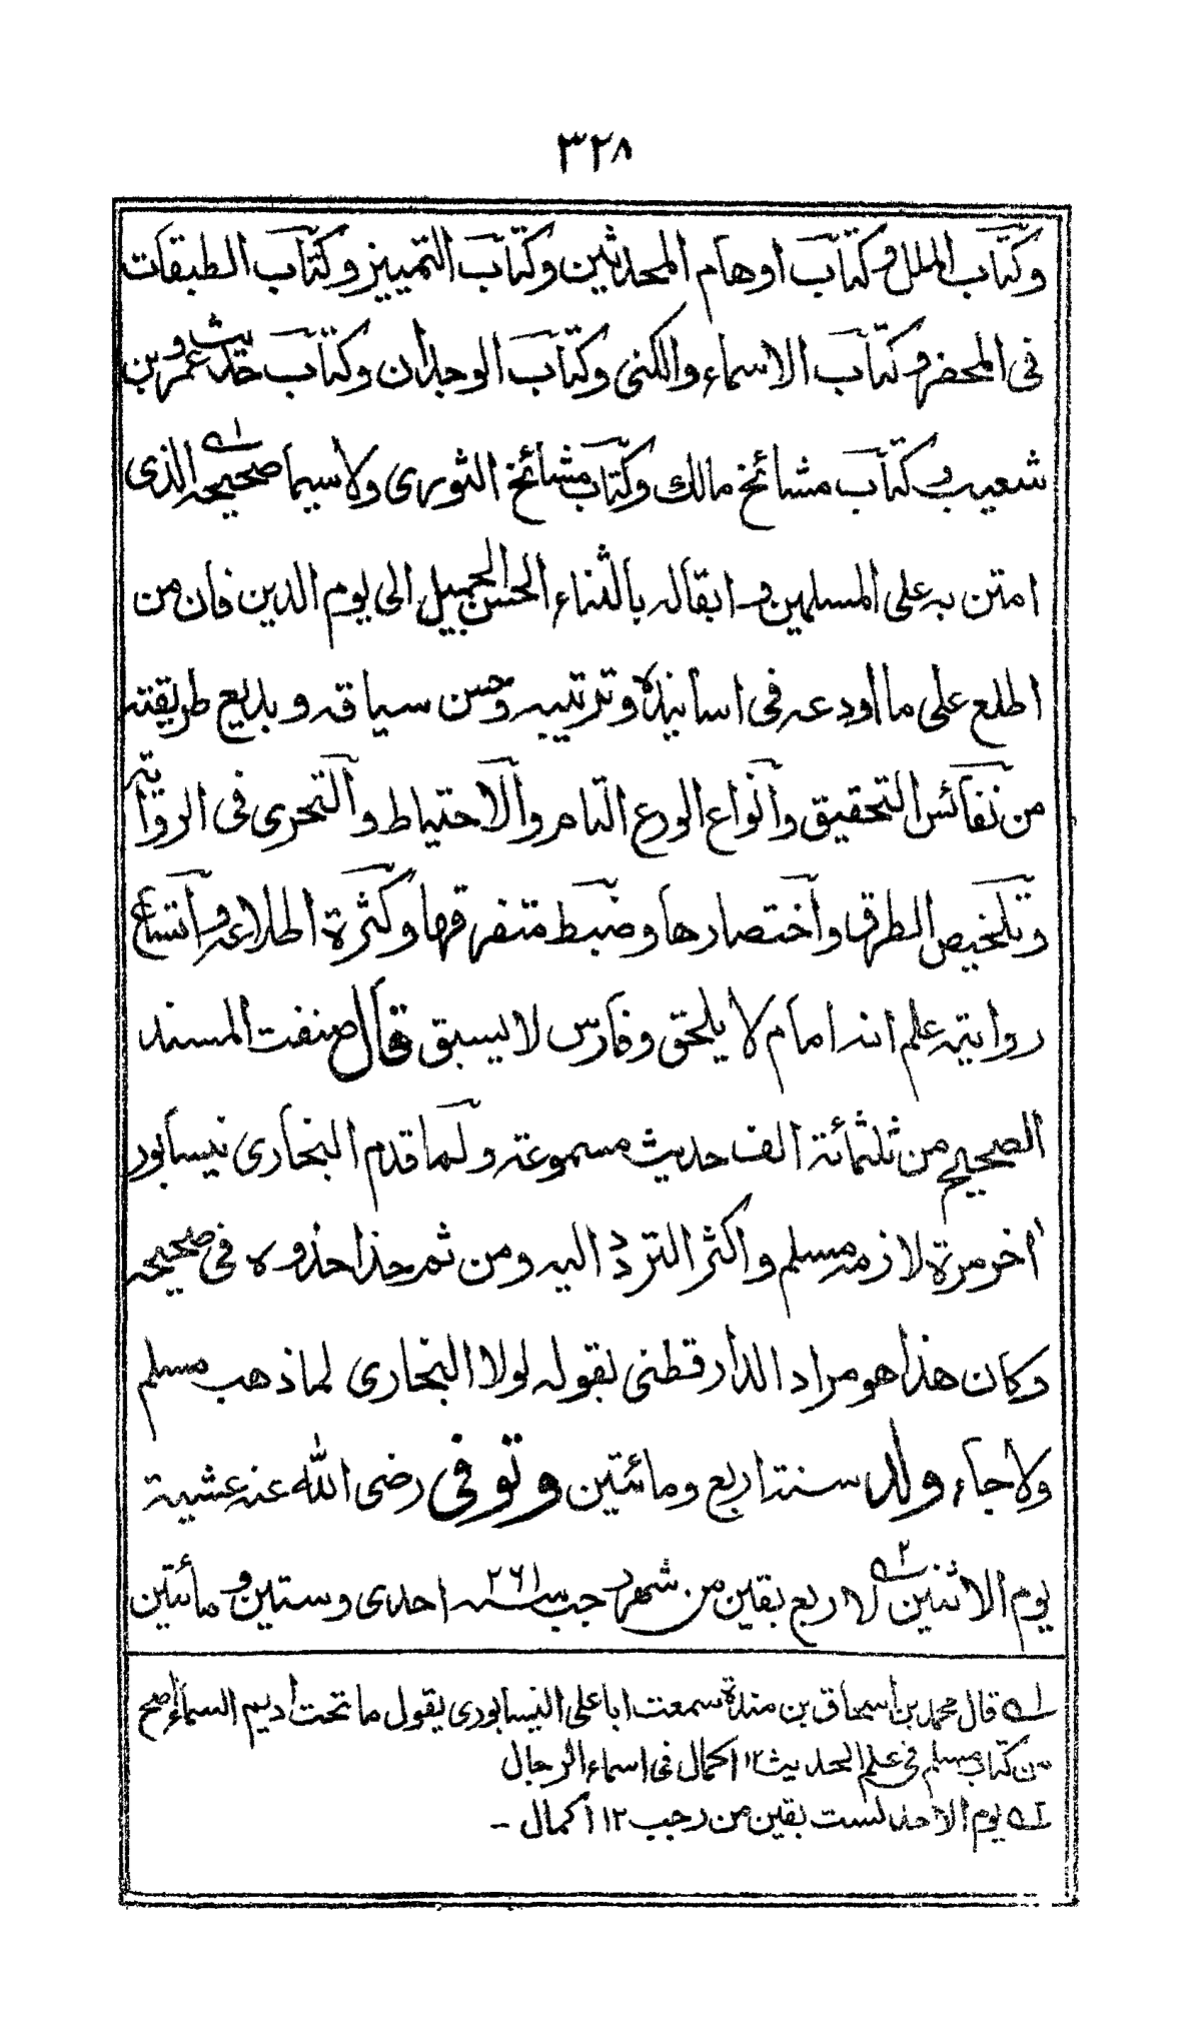 ٣٢٨
وكتاب الملل وكتاب اوهام المحدثين وكتاب التمييز وكتاب الطبقات
فى المخضر وكتاب الاسماء والكنى وكتاب الوجدان وكتاب حديث عمرو بن
شعيب وكتاب مشائخ مالك وكتاب مشائخ الثورى ولاسيما صحيحه الذى
امتن به على المسلمين وابقاله بالثناء الحسن الجميل الى يوم الدين فان من
اطلع على ما اودعه فى اسانيده وترتيبه وحسن سياقه وبديع طريقته
من نفائس التحقيق وانواع الورع التام والاحتياط والتحرى فى الرواية
وتلخيص الطرق واختصارها وضبط متفرقها وكثرة اطلاعه واتساع
روايته علم انه امام لا يلحق وفارس لا يسبق قال صنفت المسند
الصحيح من ثلثمائة الف حديث مسموعة ولما قدم البخارى نيسابور
أخر مرة لازمه مسلم واكثر التردد اليه ومن ثم حذا حذوه فى صحيحه
وكان هذا هو مراد الدارقطنى بقوله لولا البخارى لما ذهب مسلم
ولا جاء ولد سنة اربع ومائتين وتوفى رضى الله عنه عشية
يوم الاثنين ٢ لاربع بقين من شهر رجب سنة ٢٦١ احدى وستين ومائتين
١ قال محمد بن اسحاق بن مندة سمعت ابا على النيسابورى يقول ما تحت أديم السماء اصح
من كتاب مسلم فى علم الحديث ١٢ اكمال فى اسماء الرجال
٢ يوم الاحد لست بقين من رجب ١٢ اكمال -